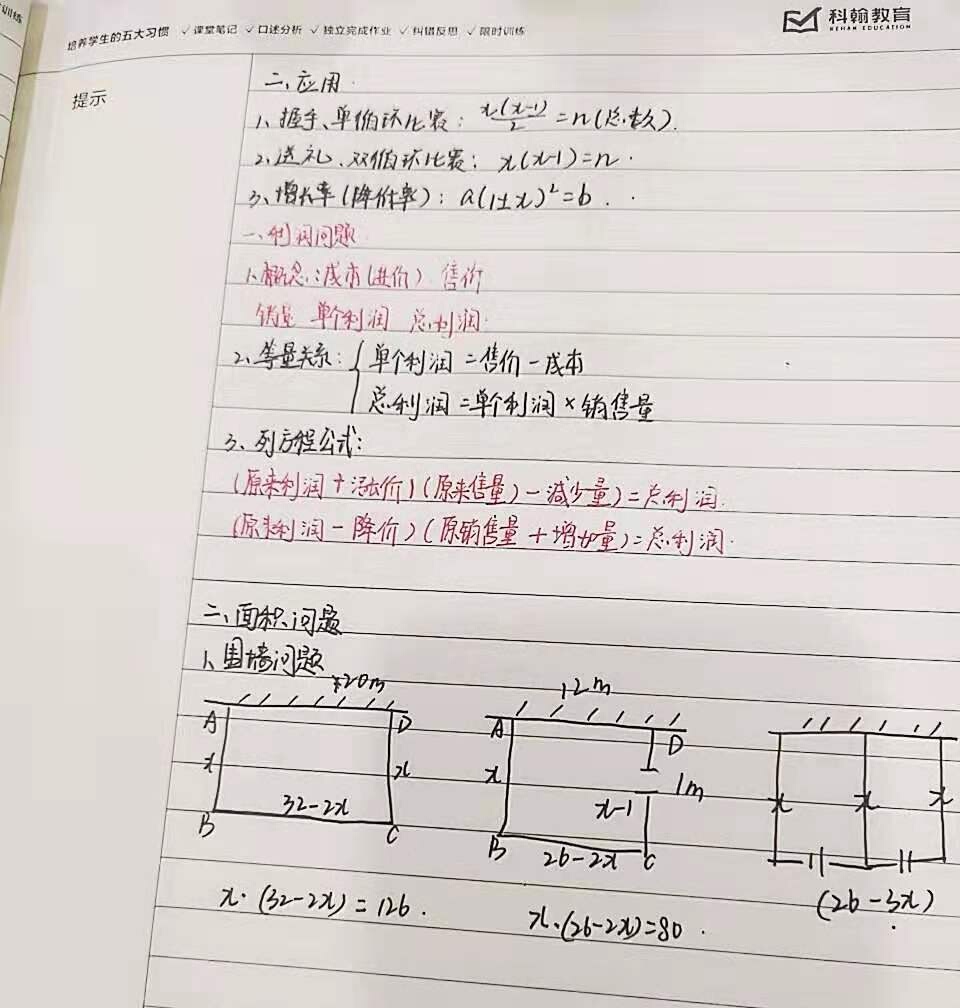 训练
培养学生的五大习惯 ✓课堂笔记 ✓口述分析 ✓独立完成作业 ✓纠错反思 ✓限时训练
科翰教育
KEHAN EDUCATION
提示
二、应用
1、握手、单循环比赛: x(x-1)/2 = n(总次数).
2、送礼、双循环比赛: x(x-1)=n.
3、增长率(降价率): a(1±x)²=b.
一、利润问题
1、概念:成本(进价) 售价
销量 单个利润 总利润.
2、等量关系:{单个利润=售价-成本
总利润=单个利润×销售量
3、列方程公式:
(原来利润+涨价)(原来售量)-减少量)=总利润.
(原来利润-降价)(原销售量+增加量)=总利润.
二、面积问题
1、围墙问题
20m 12m
A D A D
x x x 1m x x x
x-1
32-2x
B C B 26-2x C
x·(32-2x)=126. x·(26-2x)=80. (26-3x)